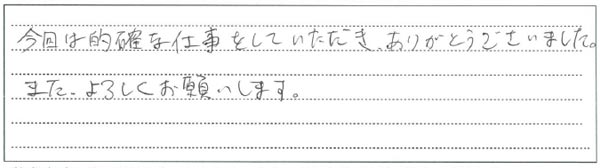 今回は的確な仕事をしていただき、ありがとうございました。
また、よろしくお願いします。